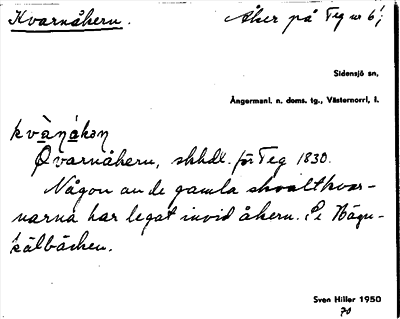 Kvarnåkern. Åker på Teg nr 6;
Sidensjö sn,
Ångermanl. n. doms. tg., Västernorrl. l.
kvà̱ṇá̱kəṇ
Qvarnåkern, skhdl. för Teg 1830.
Någon av de gamla skvaltkvar-
narna har legat invid åkern. I
kälbäcken.
Sven Hiller 1950
70